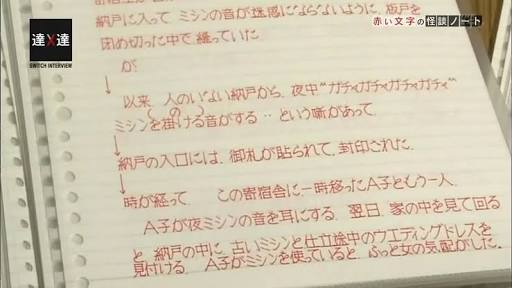 達×達
SWITCH INTERVIEW
赤い文字の怪談ノート
納戸に入って ミシンの音が迷惑にならないように、板戸を
閉め切った中で、縫っていた
が
以来 人のいない納戸から、夜中"ガチャガチャガチャガチャ"
ミシンを掛ける音がする‥という噺があって、
納戸の入口には、御札が貼られて、封印された。
時が経って この寄宿舎に一時移ったA子ともう一人、
A子が夜ミシンの音を耳にする、翌日、家の中を見て回る
と 納戸の中に、古いミシンと仕立途中のウエディングドレスを
見付ける、A子がミシンを使っていると ふっと女の気配がした。